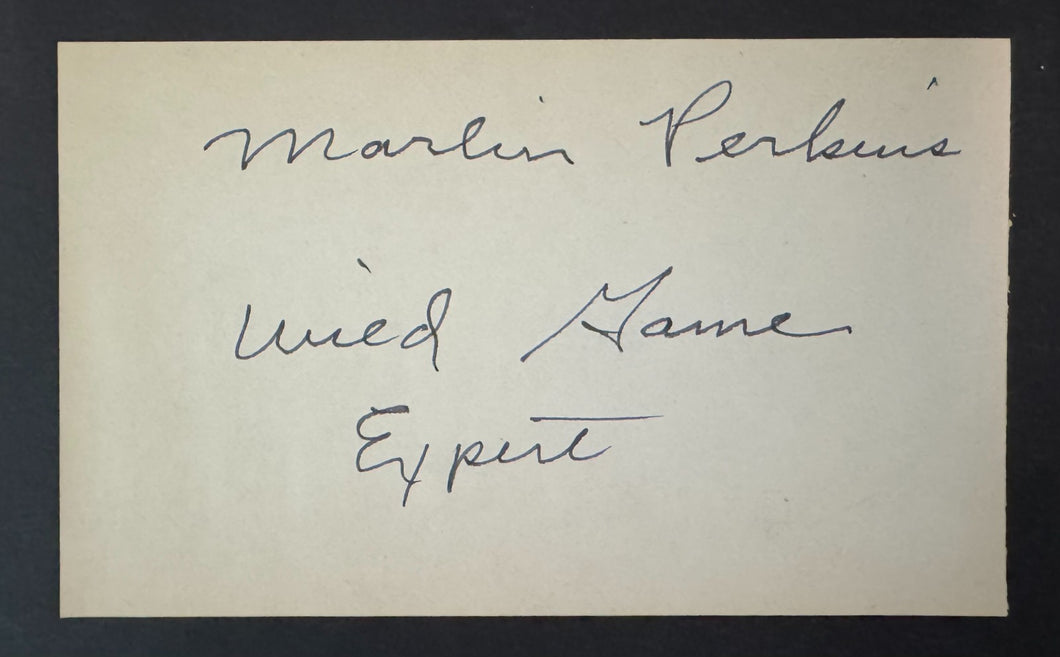 Marlin Perkins
Wild Game
Expert